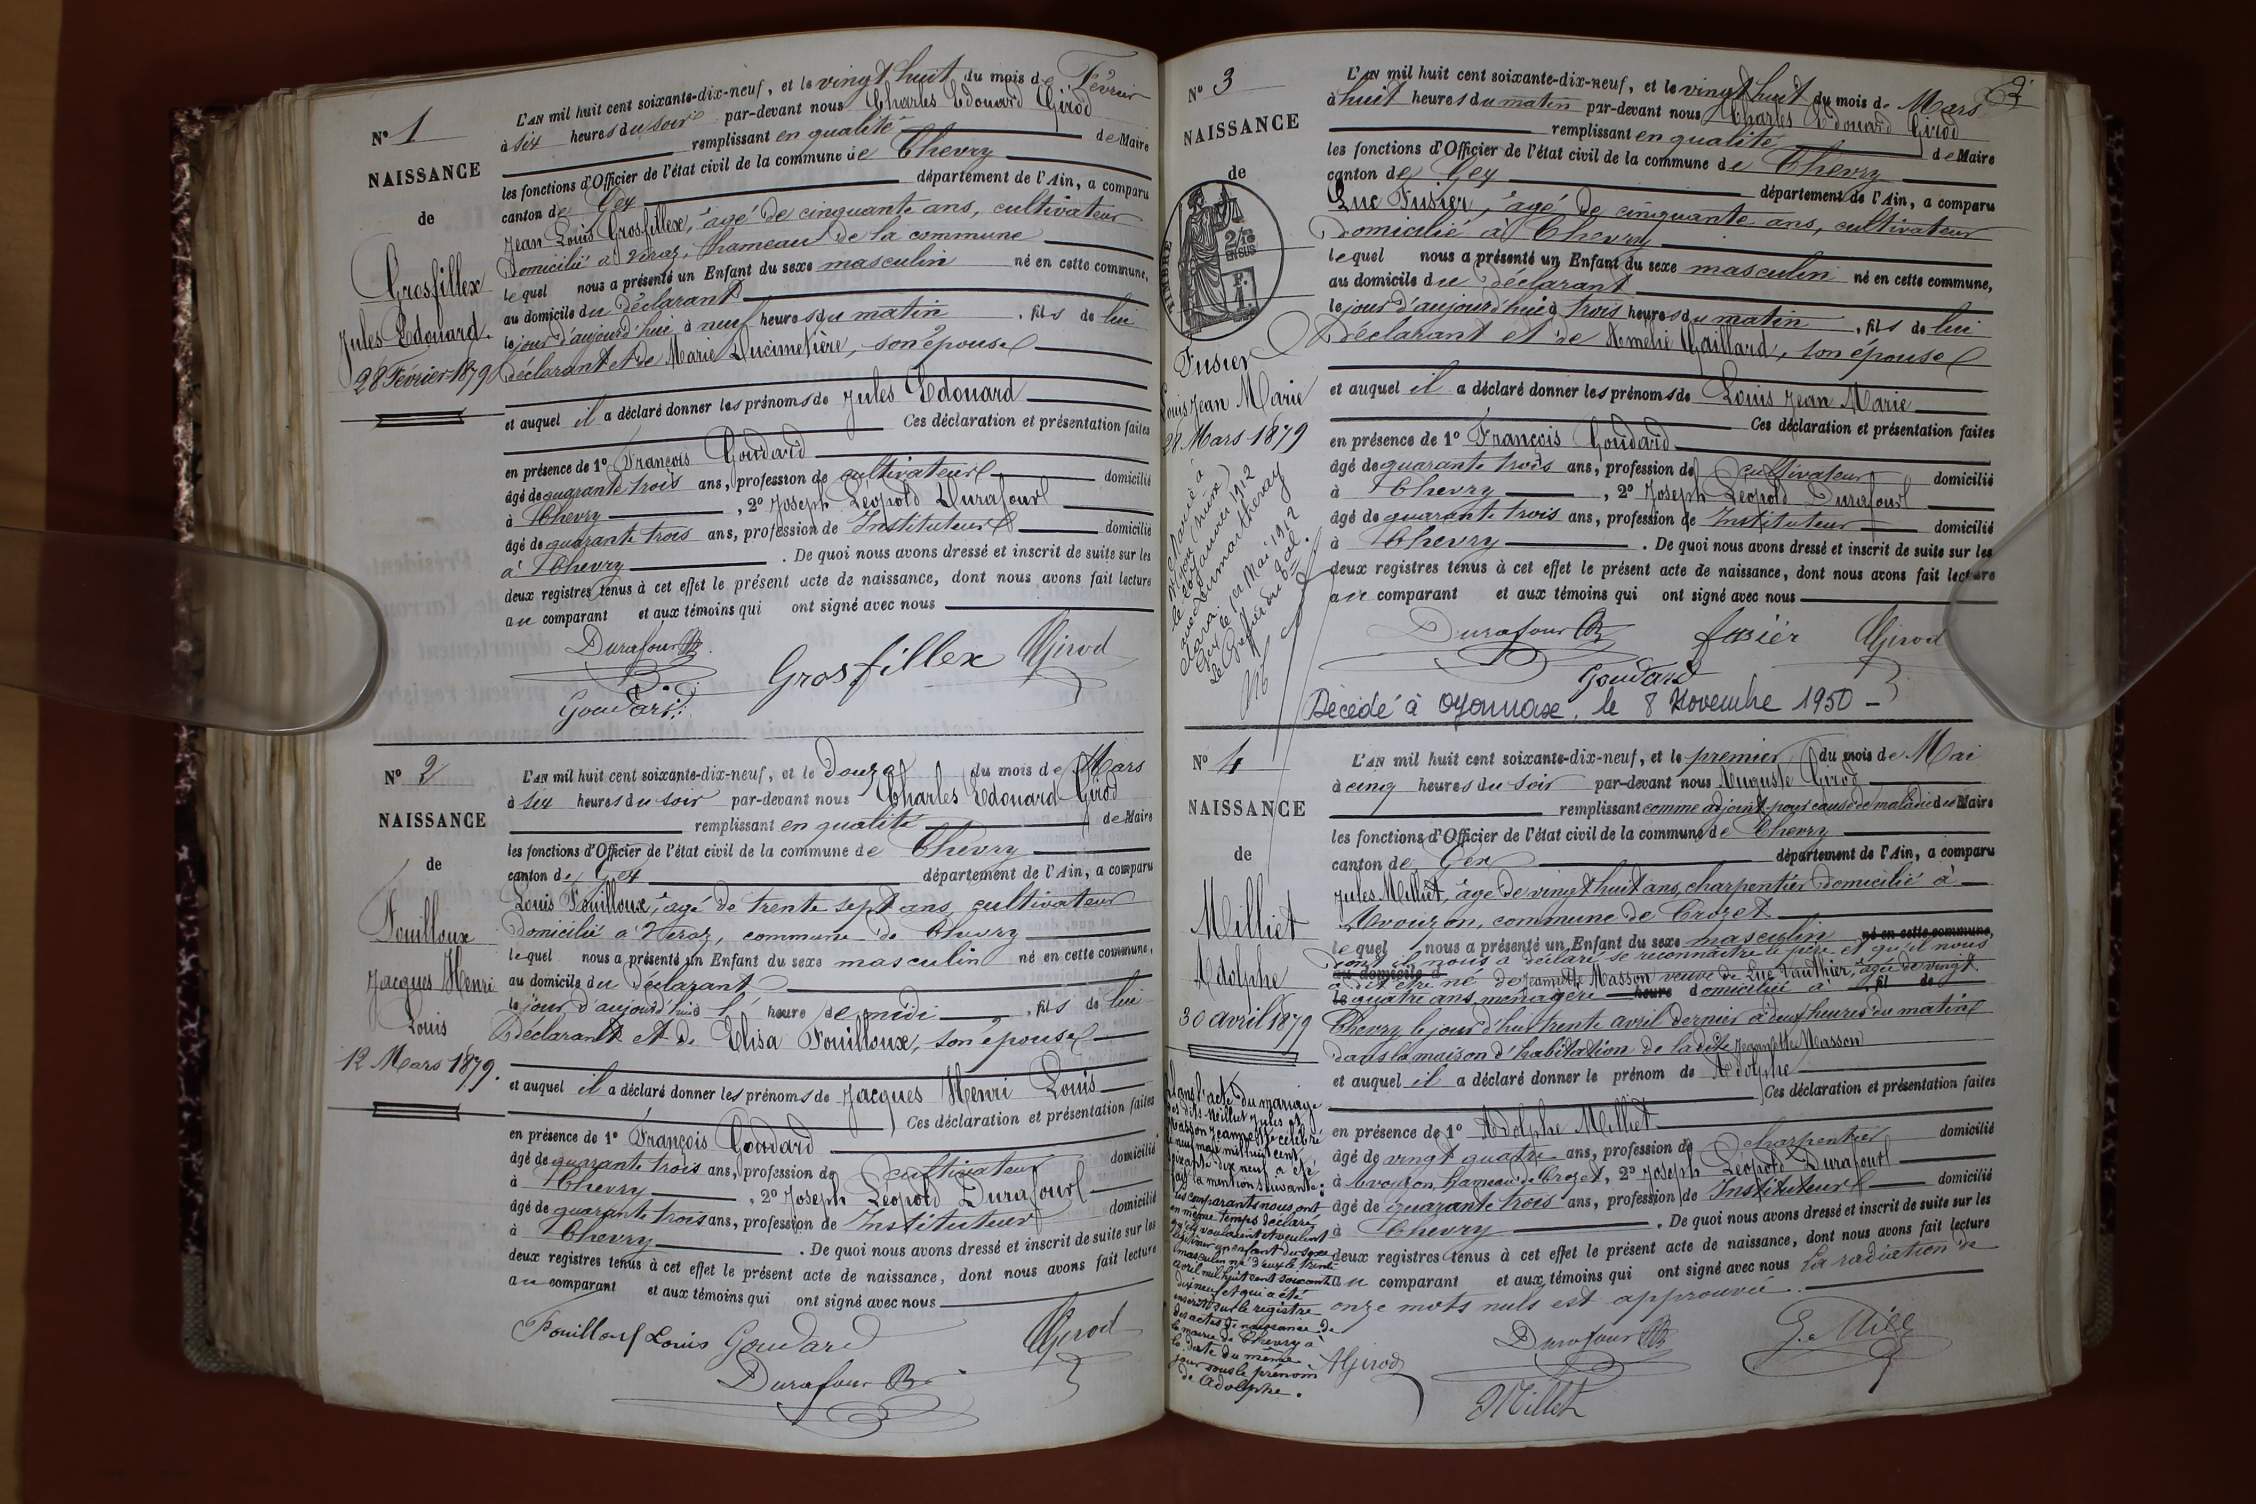 N° 1
NAISSANCE
de
Grosfillex
Jules Edouard.
28 Février 1879
L'AN mil huit cent soixante-dix-neuf, et le vingt huit du mois de Février
à six heures du soir par-devant nous Charles Edouard Girod
remplissant en qualité de Maire
les fonctions d'Officier de l'état civil de la commune de Chevry
canton de Gex département de l'Ain, a comparu
Jean Louis Grosfillex, âgé de cinquante ans, cultivateur
domicilié à Véraz, hameau de la commune
lequel nous a présenté un Enfant du sexe masculin né en cette commune,
au domicile du déclarant
le jour d'aujourd'hui à neuf heures du matin, fils de lui
déclarant et de Marie Ducimetière, son épouse
et auquel il a déclaré donner les prénoms de Jules Edouard
Ces déclaration et présentation faites
en présence de 1° François Goudard
âgé de quarante trois ans, profession de cultivateur domicilié
à Chevry, 2° Joseph Léopold Durafour
âgé de quarante trois ans, profession de Instituteur domicilié
à Chevry. De quoi nous avons dressé et inscrit de suite sur les
deux registres tenus à cet effet le présent acte de naissance, dont nous avons fait lecture
au comparant et aux témoins qui ont signé avec nous
Durafour
Grosfillex
Girod
Goudard
N° 2
NAISSANCE
de
Fouilloux
Jacques Henri
Louis
12 Mars 1879.
L'AN mil huit cent soixante-dix-neuf, et le douze du mois de Mars
à six heures du soir par-devant nous Charles Edouard Girod
remplissant en qualité de Maire
les fonctions d'Officier de l'état civil de la commune de Chevry
canton de Gex département de l'Ain, a comparu
Louis Fouilloux, âgé de trente sept ans, cultivateur
domicilié à Véraz, commune de Chevry
lequel nous a présenté un Enfant du sexe masculin né en cette commune,
au domicile du déclarant
le jour d'aujourd'hui à 1 heure de midi, fils de lui
déclarant et de Elisa Fouilloux, son épouse
et auquel il a déclaré donner les prénoms de Jacques Henri Louis
Ces déclaration et présentation faites
en présence de 1° François Goudard
âgé de quarante trois ans, profession de cultivateur domicilié
à Chevry, 2° Joseph Léopold Durafour
âgé de quarante trois ans, profession de Instituteur domicilié
à Chevry. De quoi nous avons dressé et inscrit de suite sur les
deux registres tenus à cet effet le présent acte de naissance, dont nous avons fait lecture
au comparant et aux témoins qui ont signé avec nous
Fouilloux Louis Goudard
Girod
Durafour
3
N° 3
NAISSANCE
de
TIMBRE
2/10
EN SUS
Fusier
Louis Jean Marie
28 Mars 1879
Marié à
le 20 janvier 1912
avec Dumartheray
Clara.
Gex le 12 Mai 1912
Le Greffier du
L'AN mil huit cent soixante-dix-neuf, et le vingt huit du mois de Mars
à huit heures du matin par-devant nous Charles Edouard Girod
remplissant en qualité de Maire
les fonctions d'Officier de l'état civil de la commune de Chevry
canton de Gex département de l'Ain, a comparu
Luc Fusier, âgé de cinquante ans, cultivateur
domicilié à Chevry
lequel nous a présenté un Enfant du sexe masculin né en cette commune,
au domicile du déclarant
le jour d'aujourd'hui à trois heures du matin, fils de lui
déclarant et de Amélie Gaillard, son épouse
et auquel il a déclaré donner les prénoms de Louis Jean Marie
Ces déclaration et présentation faites
en présence de 1° François Goudard
âgé de quarante trois ans, profession de cultivateur domicilié
à Chevry, 2° Joseph Léopold Durafour
âgé de quarante trois ans, profession de Instituteur domicilié
à Chevry. De quoi nous avons dressé et inscrit de suite sur les
deux registres tenus à cet effet le présent acte de naissance, dont nous avons fait lecture
au comparant et aux témoins qui ont signé avec nous
Durafour fusier Girod
Goudard
Décédé à Oyonnax, le 8 Novembre 1950 -
N° 4
NAISSANCE
de
Milliet
Adolphe
30 avril 1879
Dans l'acte du mariage
des dits Milliet Jules et
Masson Jeannette célébré
le neuf mai mil huit cent
soixante dix neuf a été
fait la mention suivante:
les comparants nous ont
en même temps déclaré
qu'ils voulaient et veulent
légitimer un enfant du sexe
masculin né d'eux le trente
avril mil huit cent soixante
dix neuf et qui a été
inscrit sur le registre
des actes de naissance de
la mairie de Chevry à
la date du même
jour sous le prénom
de Adolphe.
L'AN mil huit cent soixante-dix-neuf, et le premier du mois de Mai
à cinq heures du soir par-devant nous Auguste Girod
remplissant comme adjoint pour cause de maladie du Maire
les fonctions d'Officier de l'état civil de la commune de Chevry
canton de Gex département de l'Ain, a comparu
Jules Milliet, âgé de vingt huit ans, charpentier domicilié à
Avouzon, commune de Crozet
lequel nous a présenté un Enfant du sexe masculin né en cette commune,
dont il nous a déclaré se reconnaître le père et qu'il nous
au domicile d
a dit être né de Jeannette Masson veuve de Luc Vauthier, âgée de vingt
le quatre ans, ménagère heure domiciliée à fil de
Chevry le jour d'hui trente avril dernier à deux heures du matin
dans la maison d'habitation de la dite Jeannette Masson
et auquel il a déclaré donner le prénom de Adolphe
Ces déclaration et présentation faites
en présence de 1° Adolphe Milliet
âgé de vingt quatre ans, profession de charpentier domicilié
à Avouzon, hameau de Crozet, 2° Joseph Léopold Durafour
âgé de quarante trois ans, profession de Instituteur domicilié
à Chevry. De quoi nous avons dressé et inscrit de suite sur les
deux registres tenus à cet effet le présent acte de naissance, dont nous avons fait lecture
au comparant et aux témoins qui ont signé avec nous La radiation de
onze mots nuls est approuvée.
Durafour
AGirod
Millet